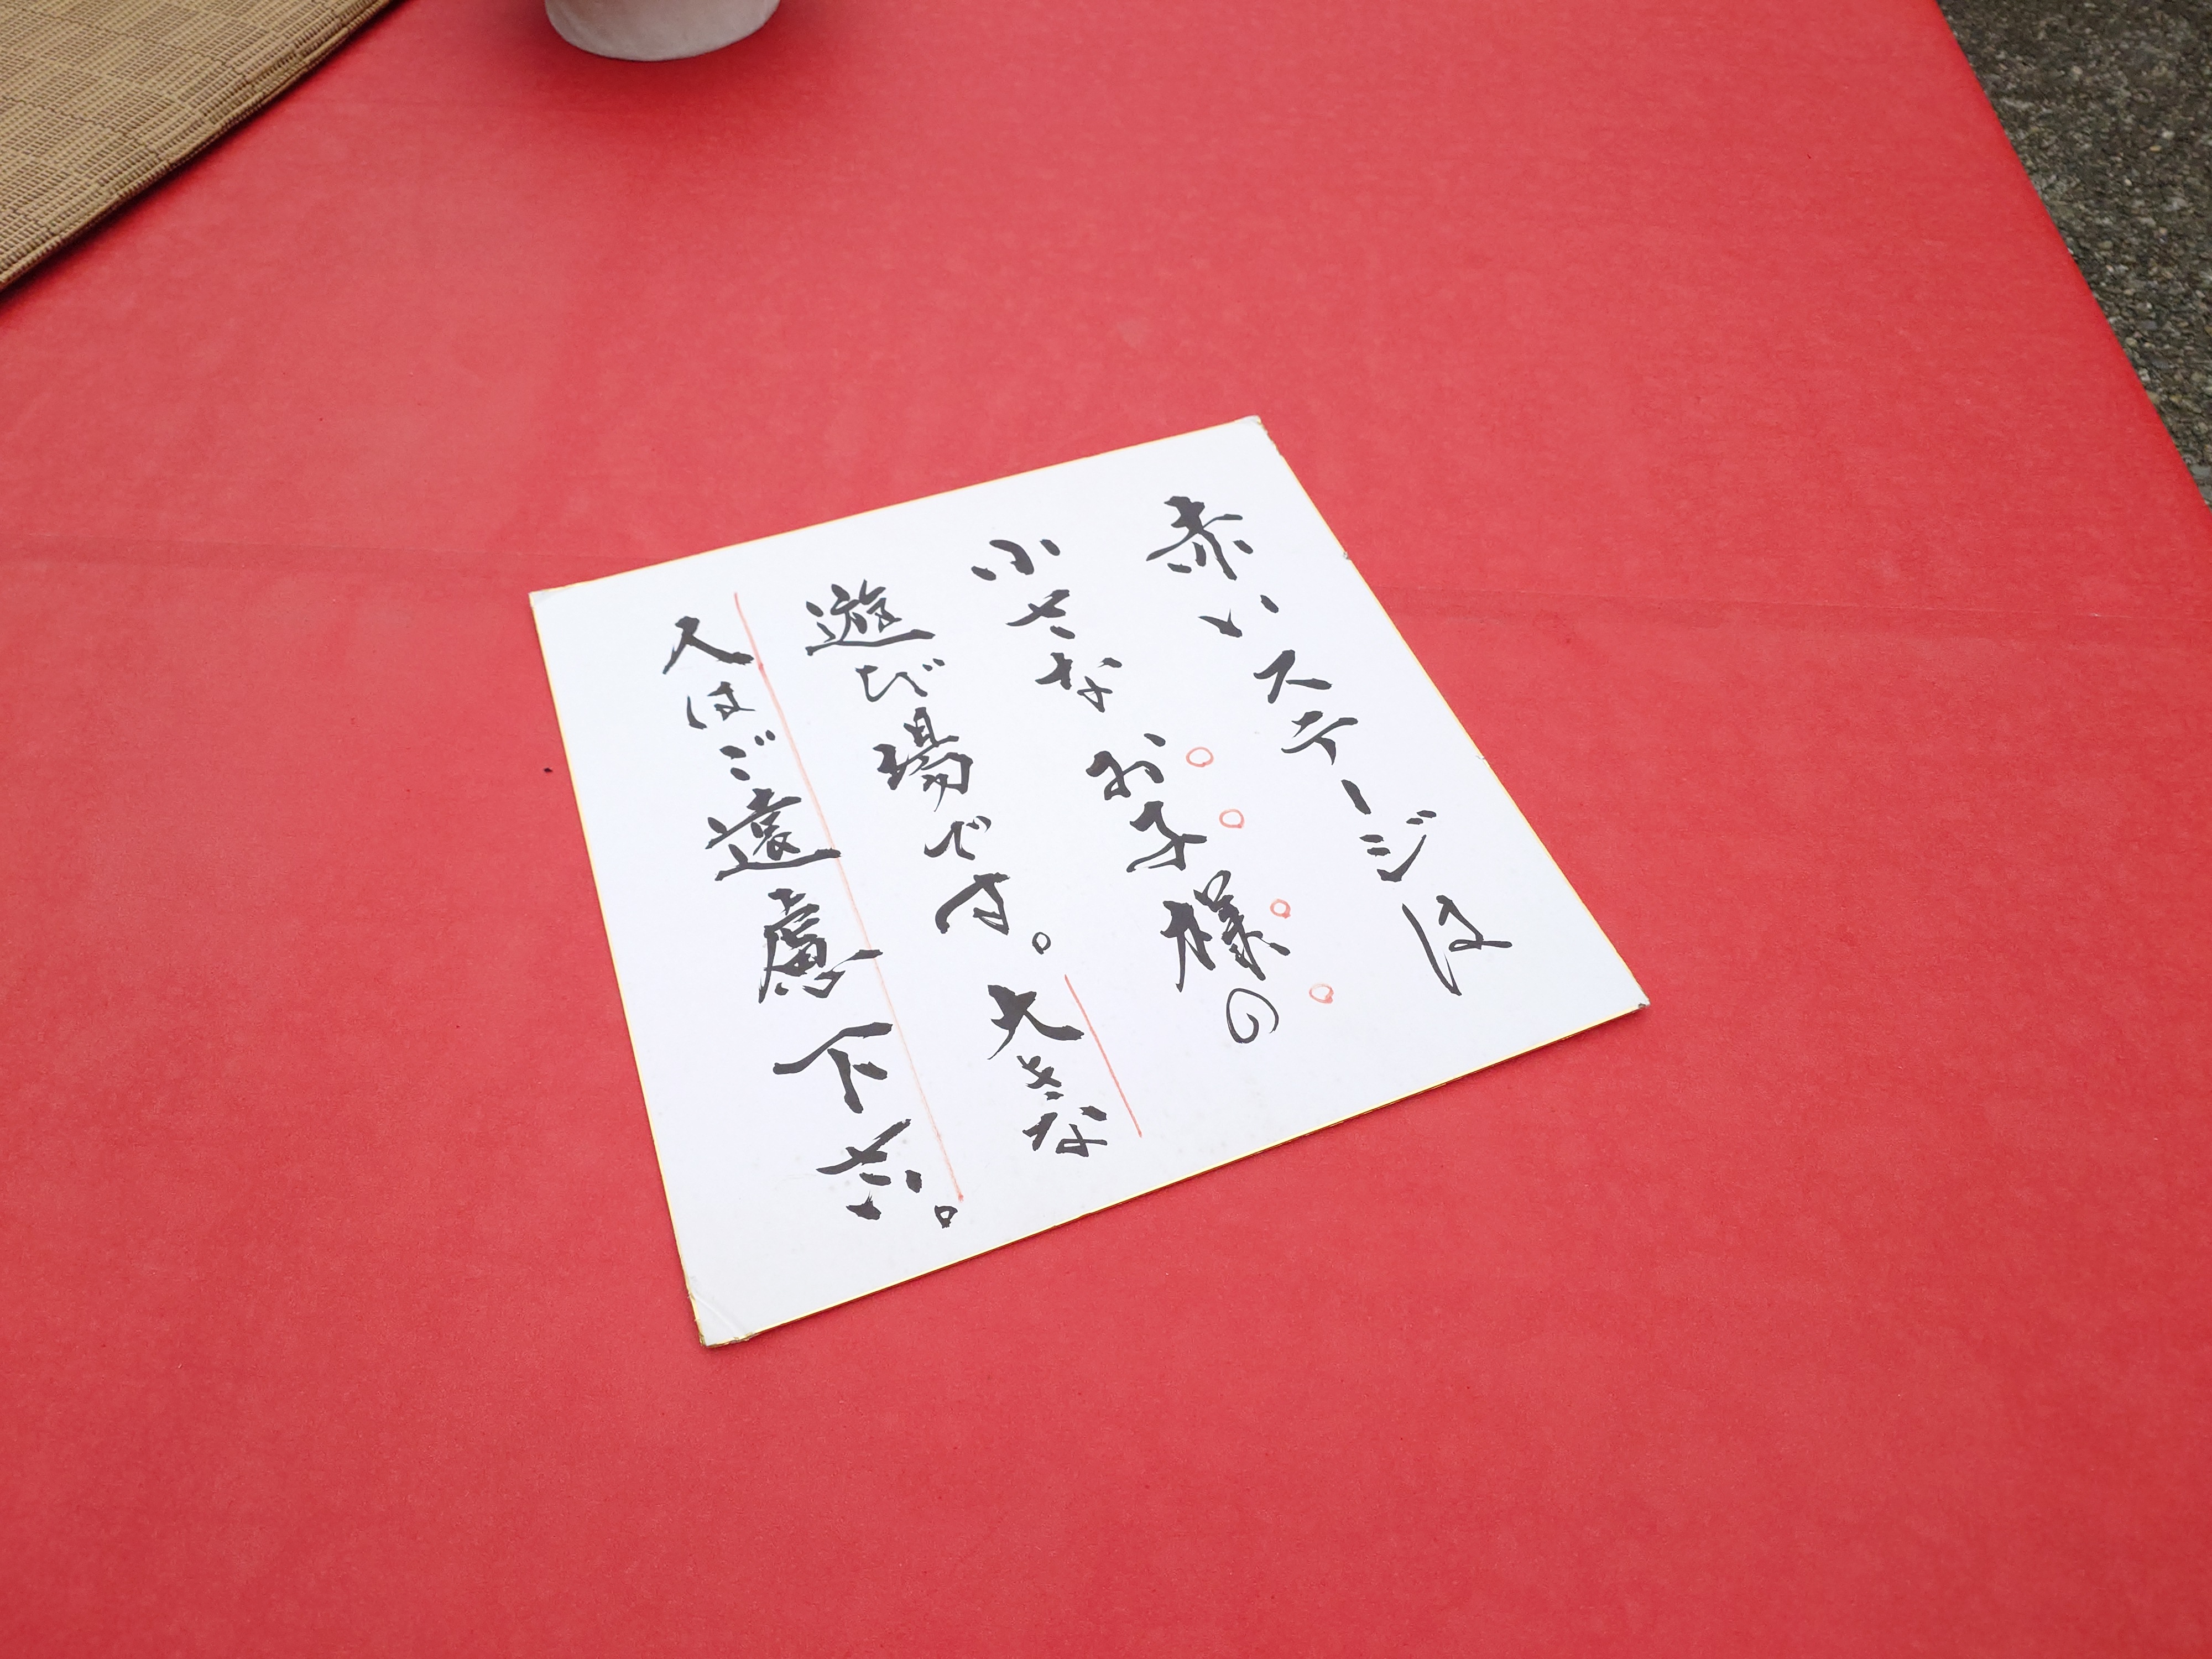 赤いステージは
小さなお子様の
遊び場です。大きな
人はご遠慮下さい。